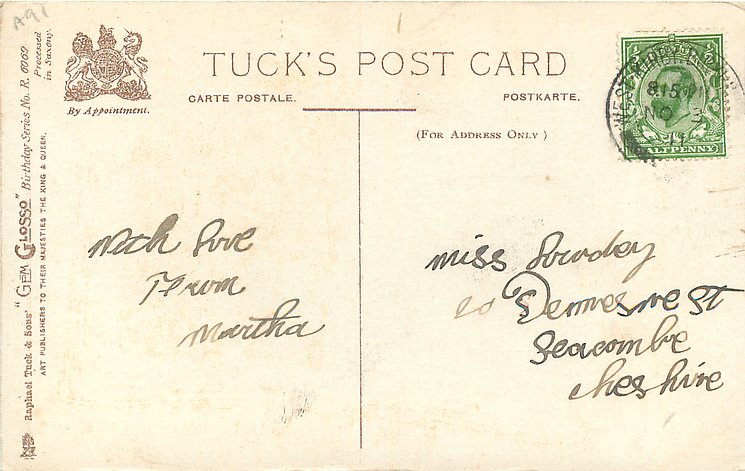 A91
TUCK'S POST CARD
By Appointment.
CARTE POSTALE.
POSTKARTE.
(FOR ADDRESS ONLY)
HALFPENNY
815
NO
11
Raphael Tuck & Sons' "GEM GLOSSO" Birthday Series No. R. 6969
ART PUBLISHERS TO THEIR MAJESTIES THE KING & QUEEN.
Processed
in Saxony.
With Love
From
Martha
Miss
St
Seacombe
Cheshire